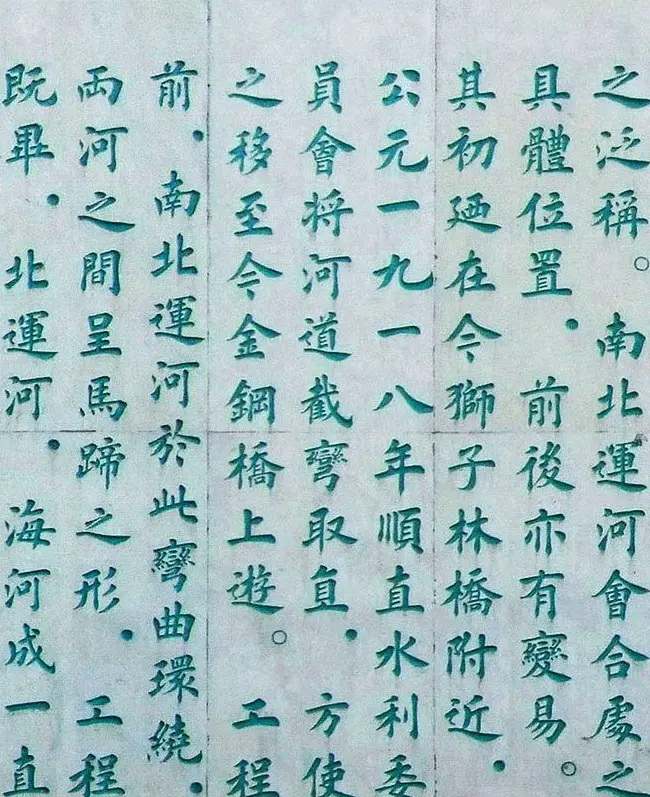 之泛稱。南北運河會合處之
具體位置．前後亦有變易。
其初廼在今獅子林橋附近．
公元一九一八年順直水利委
員會将河道截彎取直．方使
之移至今金鋼橋上遊。工程
前．南北運河於此彎曲環繞．
両河之間呈馬蹄之形．工程
既畢．北運河．海河成一直